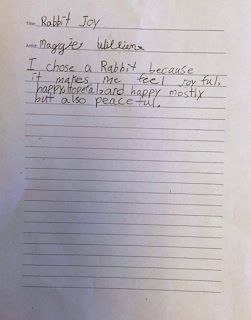 Title: Rabbit Joy
Artist: Maggie Williams
I chose a Rabbit because
it makes me feel joyful,
happy, and happy mostly
but also peaceful.